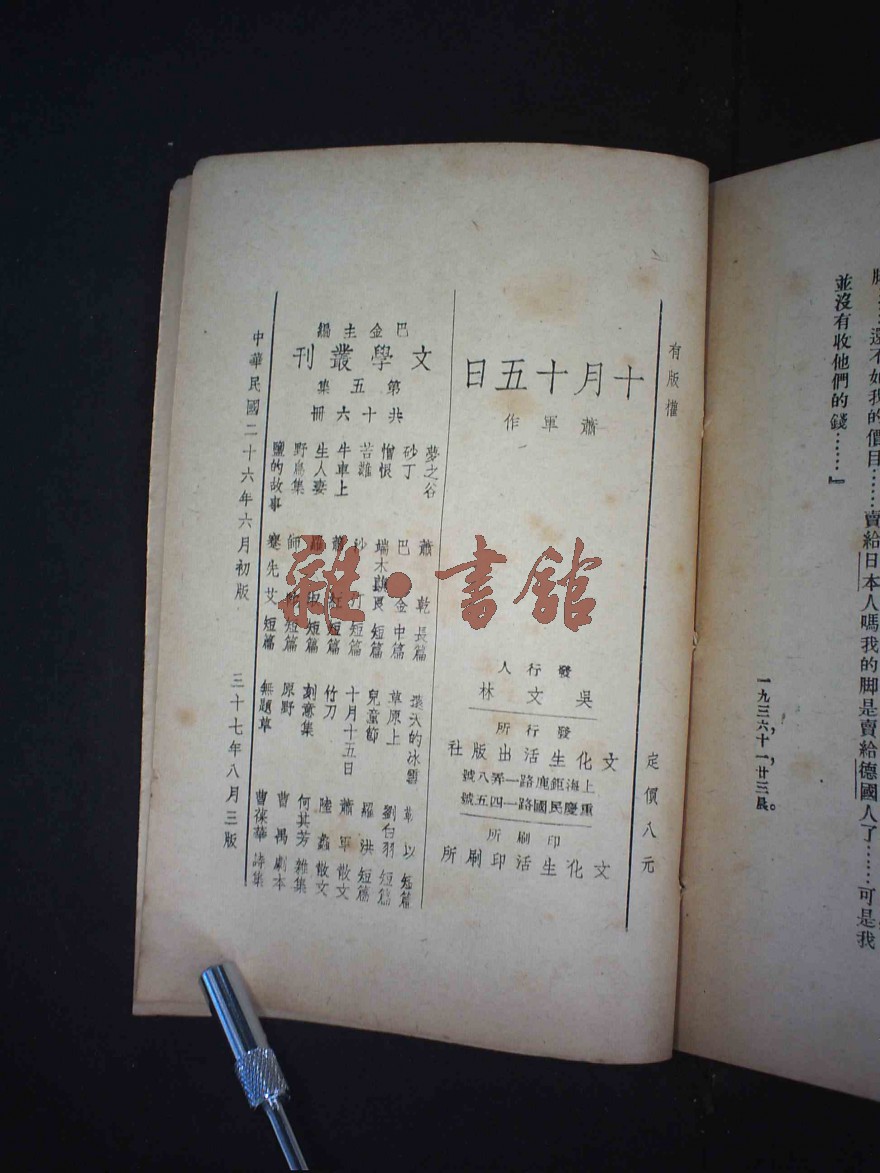 脚
還不如我的價目……賣給日本人嗎我的脚是賣給德國人了……可是我
並沒有收他們的錢……』
一九三六，十一，廿三晨。
有版權
定價八元
十月十五日
蕭軍作
發行人
吳文林
發行所
文化生活出版社
上海鉅鹿路一弄八號
重慶民國路一四五號
印刷所
文化生活印刷所
巴金主編
文學叢刊
第五集
共十六冊
夢之谷 蕭乾 長篇
砂丁 巴金 中篇
憎恨 端木蕻良 短篇
苦難 沙汀 短篇
牛車上 蕭紅 短篇
生人妻 羅淑 短篇
野鳥集 師陀 短篇
鹽的故事 蹇先艾 短篇
漫天的冰雪 以 短篇
草原上 劉白羽 短篇
兒童節 羅洪 短篇
十月十五日 蕭軍 散文
竹刀 陸蠡 散文
刻意集 何其芳 雜集
原野 曹禺 劇本
無題草 曹葆華 詩集
中華民國二十六年六月初版
三十七年八月三版
雜·書館